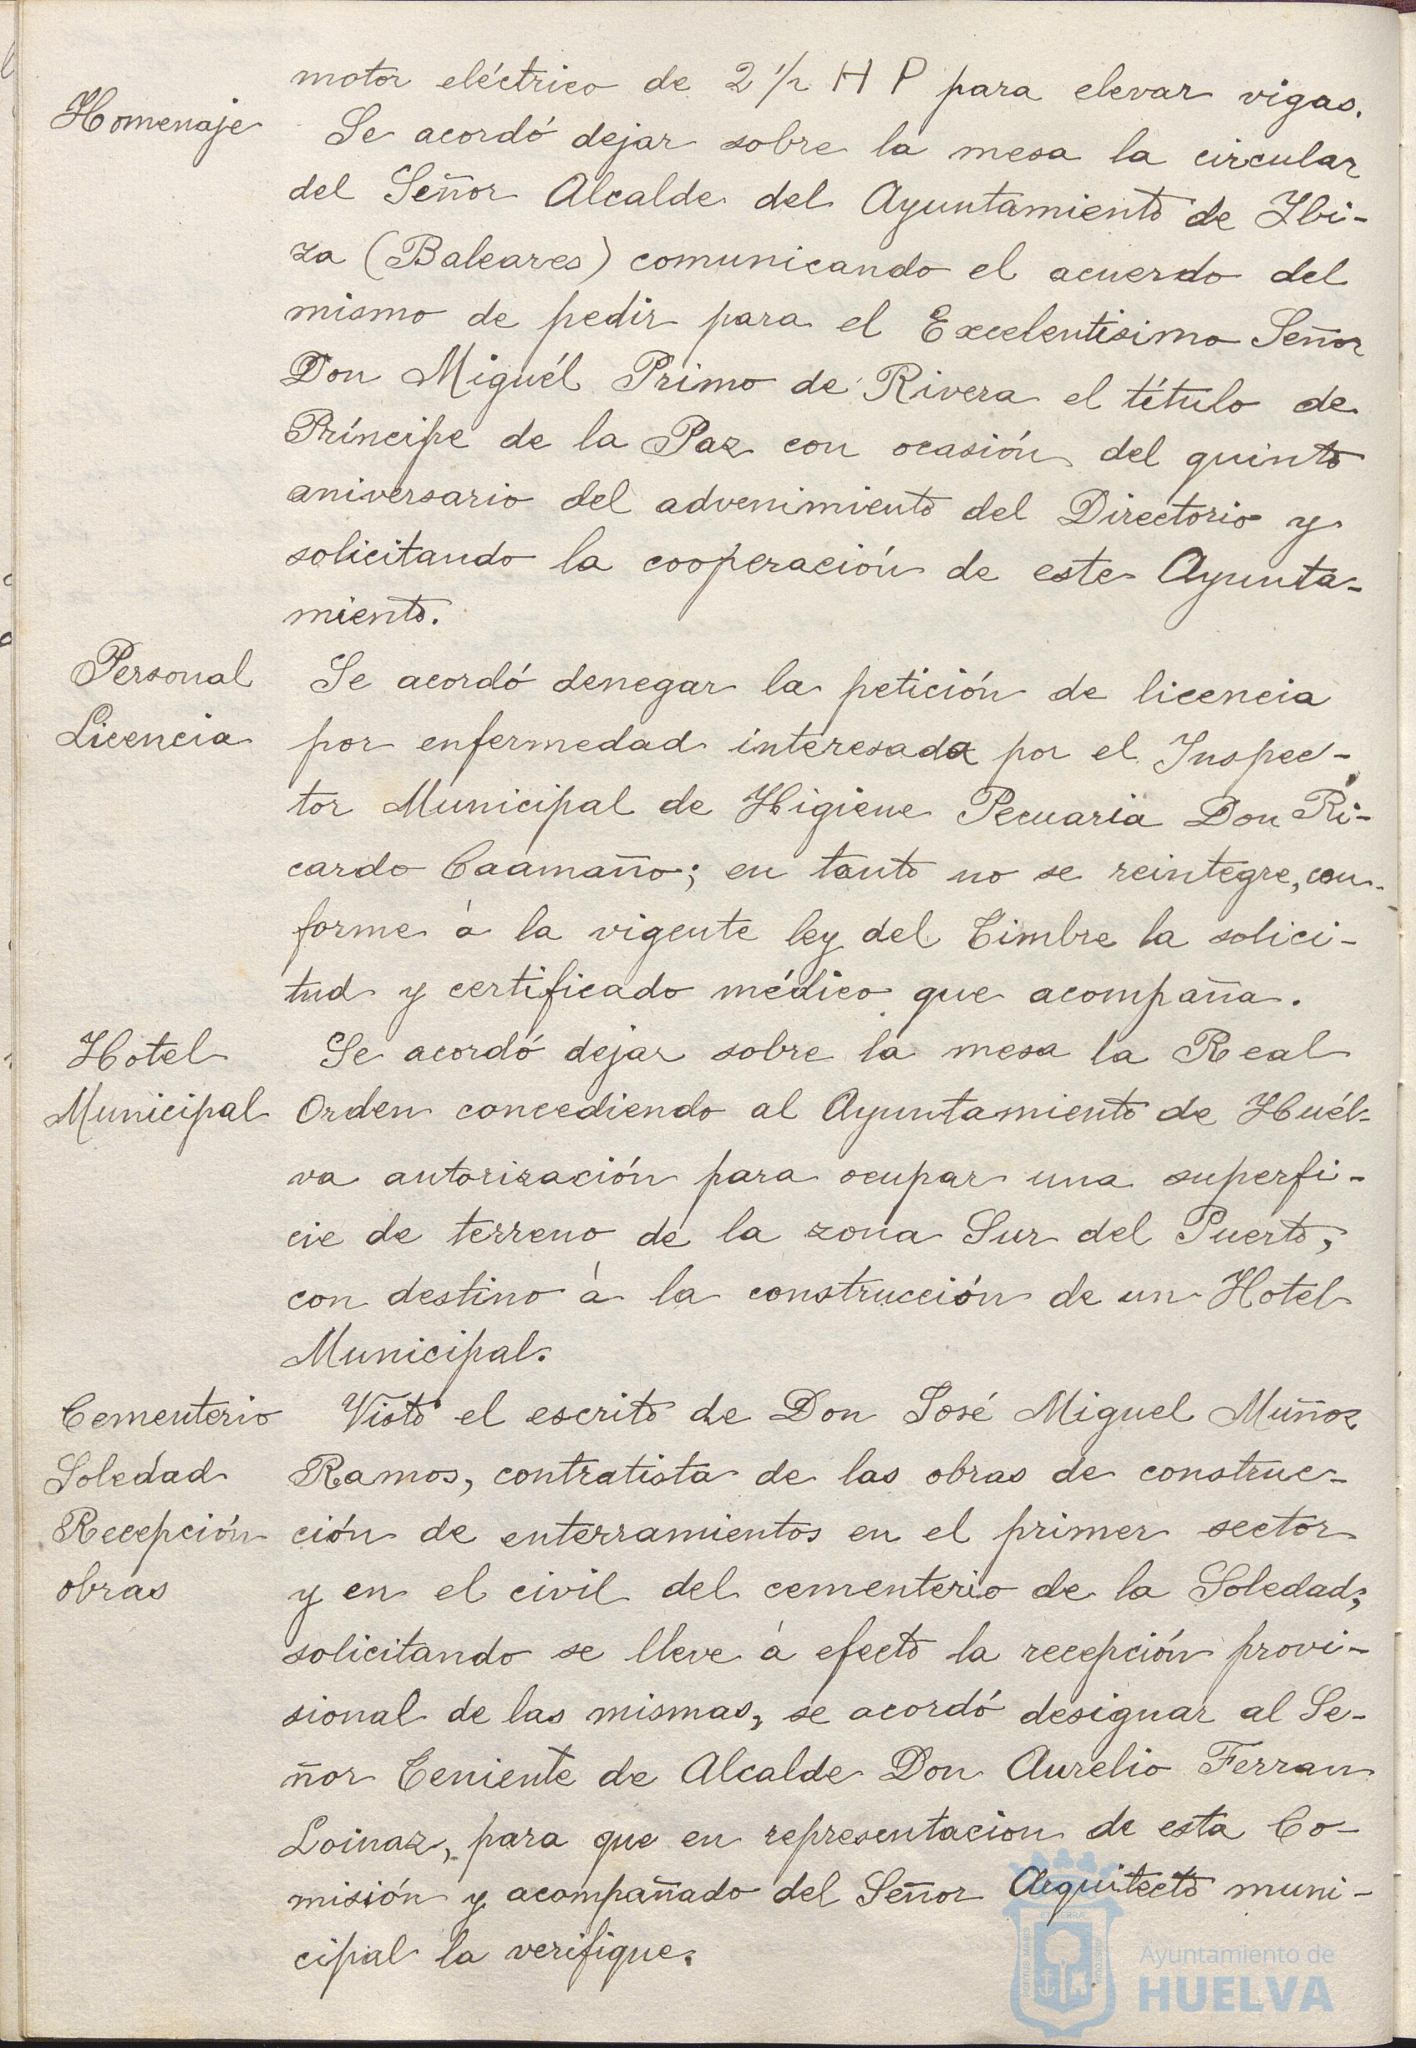 motor eléctrico de 2 1/2 H P para elevar vigas.
Homenaje
Se acordó dejar sobre la mesa la circular
del Señor Alcalde del Ayuntamiento de Ybi-
za (Baleares) comunicando el acuerdo del
mismo de pedir para el Excelentisimo Señor
Don Miguél Primo de Rivera el título de
Príncipe de la Paz con ocasión del quinto
aniversario del advenimiento del Directorio y
solicitando la cooperación de este Ayunta-
miento.
Personal
Licencia
Se acordó denegar la petición de licencia
por enfermedad interesada por el Inspec-
tor Municipal de Higiene Pecuaria Don Ri-
cardo Caamaño; en tanto no se reintegre, con-
forme á la vigente ley del Timbre la solici-
tud y certificado médico que acompaña.
Hotel
Municipal
Se acordó dejar sobre la mesa la Real
Orden concediendo al Ayuntamiento de Huél-
va autorización para ocupar una superfi-
cie de terreno de la zona Sur del Puerto,
con destino á la construcción de un Hotel
Municipal.
Cementerio
Soledad
Recepción
obras
Visto el escrito de Don José Miguel Muñoz
Ramos, contratista de las obras de construc-
ción de enterramientos en el primer sector
y en el civil del cementerio de la Soledad;
solicitando se lleve á efecto la recepción provi-
sional de las mismas, se acordó designar al Se-
ñor Teniente de Alcalde Don Aurelio Ferran
Loinaz, para que en representacion de esta Co-
misión y acompañado del Señor Arquitecto muni-
cipal la verifique.
Ayuntamiento de
HUELVA